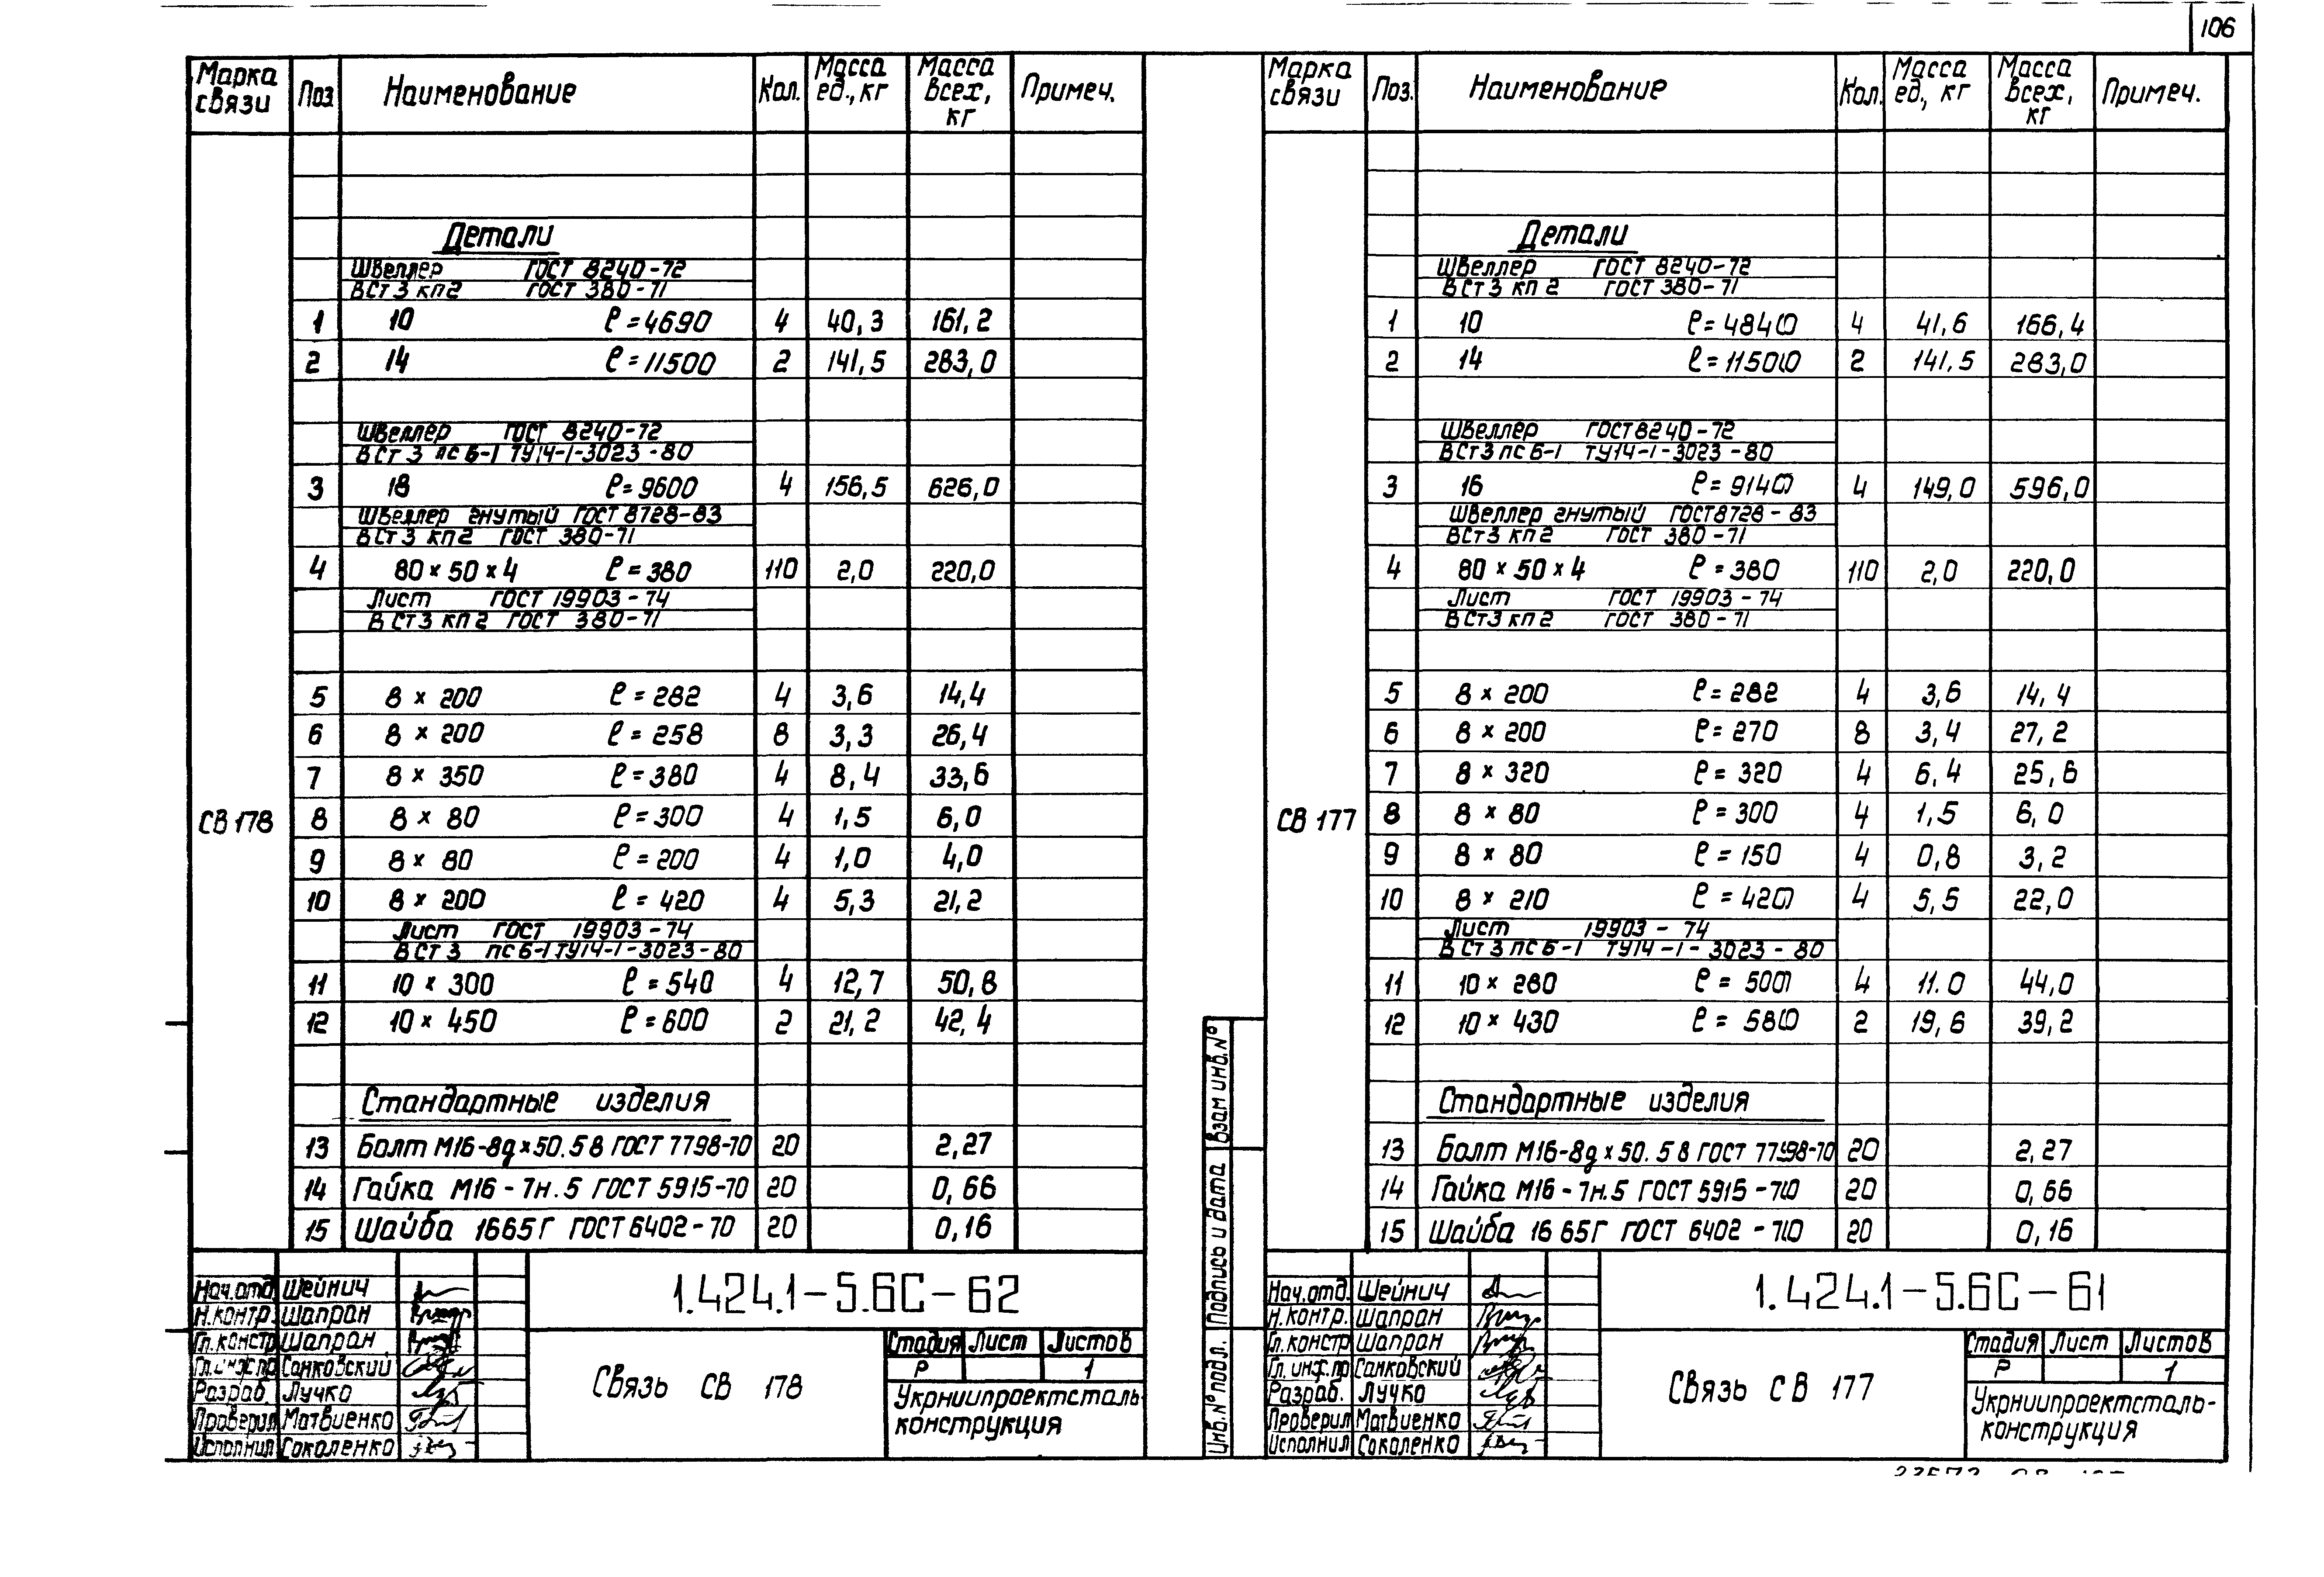 106
Марка связи Поз. Наименование Кол. Масса ед., кг Масса всех, кг Примеч.
Детали
Швеллер ГОСТ 8240-72
ВСт3 кп2 ГОСТ 380-71
1 10 ℓ=4690 4 40,3 161,2
2 14 ℓ=11500 2 141,5 283,0
Швеллер ГОСТ 8240-72
ВСт3 пс6-1 ТУ14-1-3023-80
3 18 ℓ=9600 4 156,5 626,0
Швеллер гнутый ГОСТ 8728-83
ВСт3 кп2 ГОСТ 380-71
4 80×50×4 ℓ=380 110 2,0 220,0
Лист ГОСТ 19903-74
ВСт3 кп2 ГОСТ 380-71
5 8×200 ℓ=282 4 3,6 14,4
6 8×200 ℓ=258 8 3,3 26,4
7 8×350 ℓ=380 4 8,4 33,6
СВ 178 8 8×80 ℓ=300 4 1,5 6,0
9 8×80 ℓ=200 4 1,0 4,0
10 8×200 ℓ=420 4 5,3 21,2
Лист ГОСТ 19903-74
ВСт3 пс6-1 ТУ14-1-3023-80
11 10×300 ℓ=540 4 12,7 50,8
12 10×450 ℓ=600 2 21,2 42,4
Стандартные изделия
13 Болт М16-8g×50.58 ГОСТ 7798-70 20 2,27
14 Гайка М16-7н.5 ГОСТ 5915-70 20 0,66
15 Шайба 16 65Г ГОСТ 6402-70 20 0,16
1.424.1-5.6С-62
Нач.отд. Шейнич
Н.контр. Шапран
Гл.констр Шапран
Гл.инж.пр Санковский
Разраб. Лучко
Проверил Матвиенко
Исполнил Соколенко
Связь СВ 178
Стадия Лист Листов
Р 1
Укрниипроектсталь-
конструкция
Марка связи Поз. Наименование Кол. Масса ед., кг Масса всех, кг Примеч.
Детали
Швеллер ГОСТ 8240-72
ВСт3 кп2 ГОСТ 380-71
1 10 ℓ=4840 4 41,6 166,4
2 14 ℓ=11500 2 141,5 283,0
Швеллер ГОСТ 8240-72
ВСт3 пс6-1 ТУ14-1-3023-80
3 16 ℓ=9140 4 149,0 596,0
Швеллер гнутый ГОСТ 8728-83
ВСт3 кп2 ГОСТ 380-71
4 80×50×4 ℓ=380 110 2,0 220,0
Лист ГОСТ 19903-74
ВСт3 кп2 ГОСТ 380-71
5 8×200 ℓ=282 4 3,6 14,4
6 8×200 ℓ=270 8 3,4 27,2
7 8×320 ℓ=320 4 6,4 25,6
СВ 177 8 8×80 ℓ=300 4 1,5 6,0
9 8×80 ℓ=150 4 0,8 3,2
10 8×210 ℓ=420 4 5,5 22,0
Лист 19903-74
ВСт3 пс6-1 ТУ14-1-3023-80
11 10×280 ℓ=500 4 11.0 44,0
12 10×430 ℓ=580 2 19,6 39,2
Стандартные изделия
13 Болт М16-8g×50.58 ГОСТ 7798-70 20 2,27
14 Гайка М16-7н.5 ГОСТ 5915-70 20 0,66
15 Шайба 16 65Г ГОСТ 6402-70 20 0,16
Взам инв.№
Подпись и дата
Инв.№ подл.
1.424.1-5.6С-61
Нач.отд. Шейнич
Н.контр. Шапран
Гл.констр Шапран
Гл.инж.пр Санковский
Разраб. Лучко
Проверил Матвиенко
Исполнил Соколенко
Связь СВ 177
Стадия Лист Листов
Р 1
Укрниипроектсталь-
конструкция